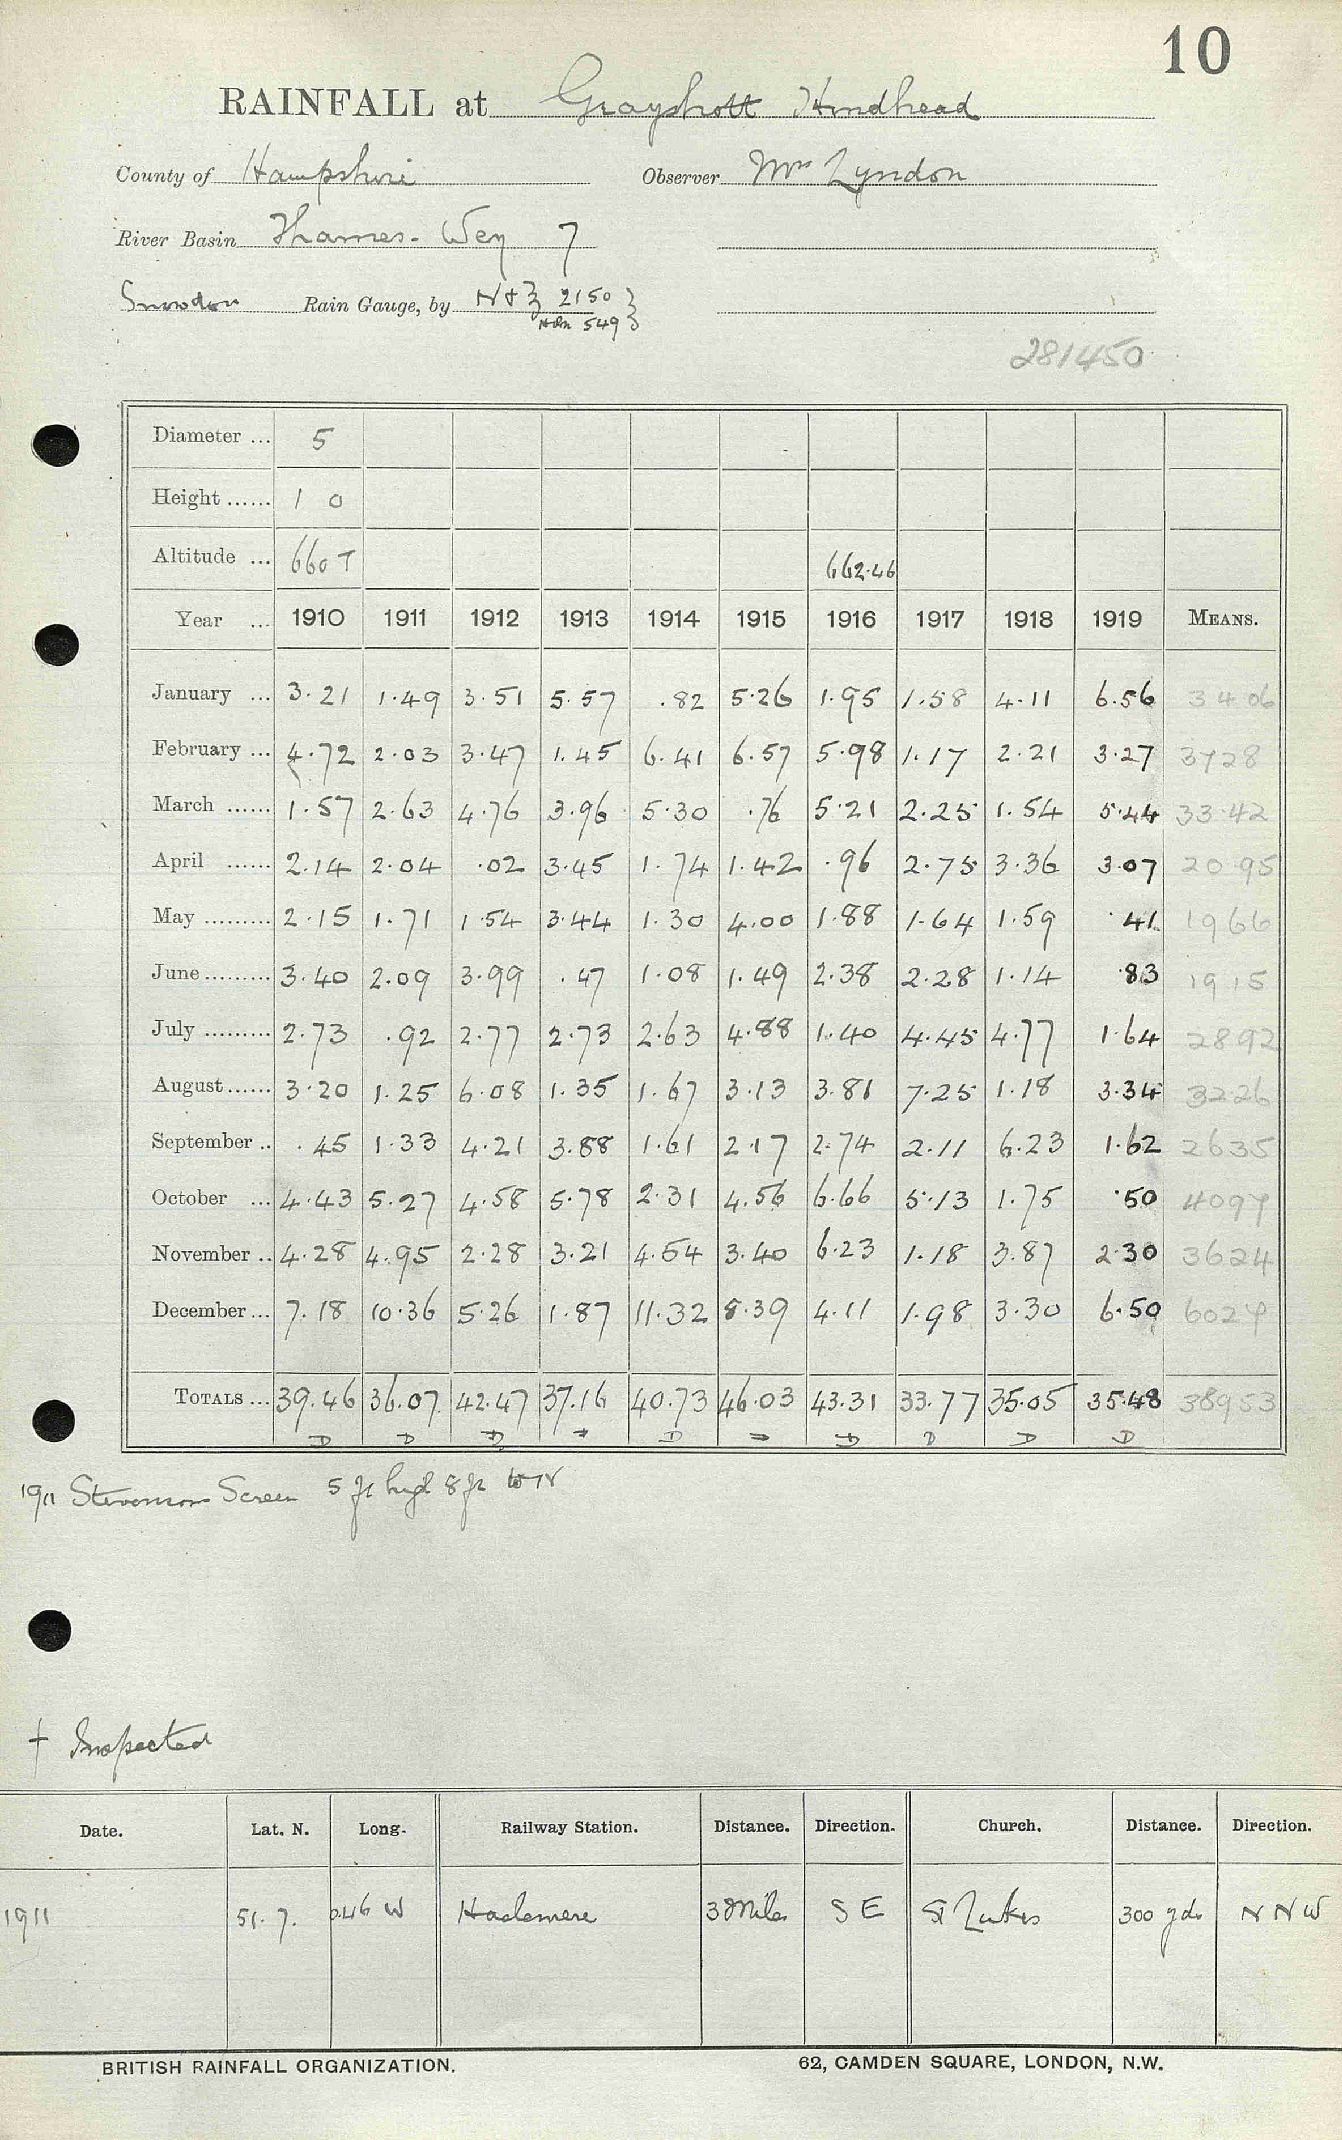 10
RAINFALL at Grayshott Hindhead
County of Hampshire Observer Mrs Lyndon
River Basin Thames - Wey 7
Snowdon Rain Gauge, by N & Z 2150
549
281450
Diameter ... 5
Height ...... 1 0
Altitude ... 660 T 662.46
Year ... 1910 1911 1912 1913 1914 1915 1916 1917 1918 1919 MEANS.
January ... 3.21 1.49 3.51 5.57 .82 5.26 1.95 1.58 4.11 6.56 3406
February ... 4.72 2.03 3.47 1.45 6.41 6.57 5.98 1.17 2.21 3.27 3728
March ...... 1.57 2.63 4.76 3.96 5.30 .76 5.21 2.25 1.54 5.44 33.42
April ...... 2.14 2.04 .02 3.45 1.74 1.42 .96 2.75 3.36 3.07 20.95
May ......... 2.15 1.71 1.54 3.44 1.30 4.00 1.88 1.64 1.59 .41 1966
June ......... 3.40 2.09 3.99 .47 1.08 1.49 2.38 2.28 1.14 .83 1915
July ......... 2.73 .92 2.77 2.73 2.63 4.88 1.40 4.45 4.77 1.64 2892
August ...... 3.20 1.25 6.08 1.35 1.67 3.13 3.81 7.25 1.18 3.34 3226
September .. .45 1.33 4.21 3.88 1.61 2.17 2.74 2.11 6.23 1.62 2635
October ... 4.43 5.27 4.58 5.78 2.31 4.56 6.66 5.13 1.75 .50 4097
November .. 4.28 4.95 2.28 3.21 4.54 3.40 6.23 1.18 3.87 2.30 3624
December ... 7.18 10.36 5.26 1.87 11.32 8.39 4.11 1.98 3.30 6.50 6027
TOTALS ... 39.46 36.07 42.47 37.16 40.73 46.03 43.31 33.77 35.05 35.48 38953
D D D D D D D
1911 Stevenson Screen 5 ft high 8 ft to N
† Inspected
Date. Lat. N. Long. Railway Station. Distance. Direction. Church. Distance. Direction.
1911 51.7. 0.46 W Haslemere 3 Miles S E St Lukes 300 yds N N W
BRITISH RAINFALL ORGANIZATION. 62, CAMDEN SQUARE, LONDON, N.W.